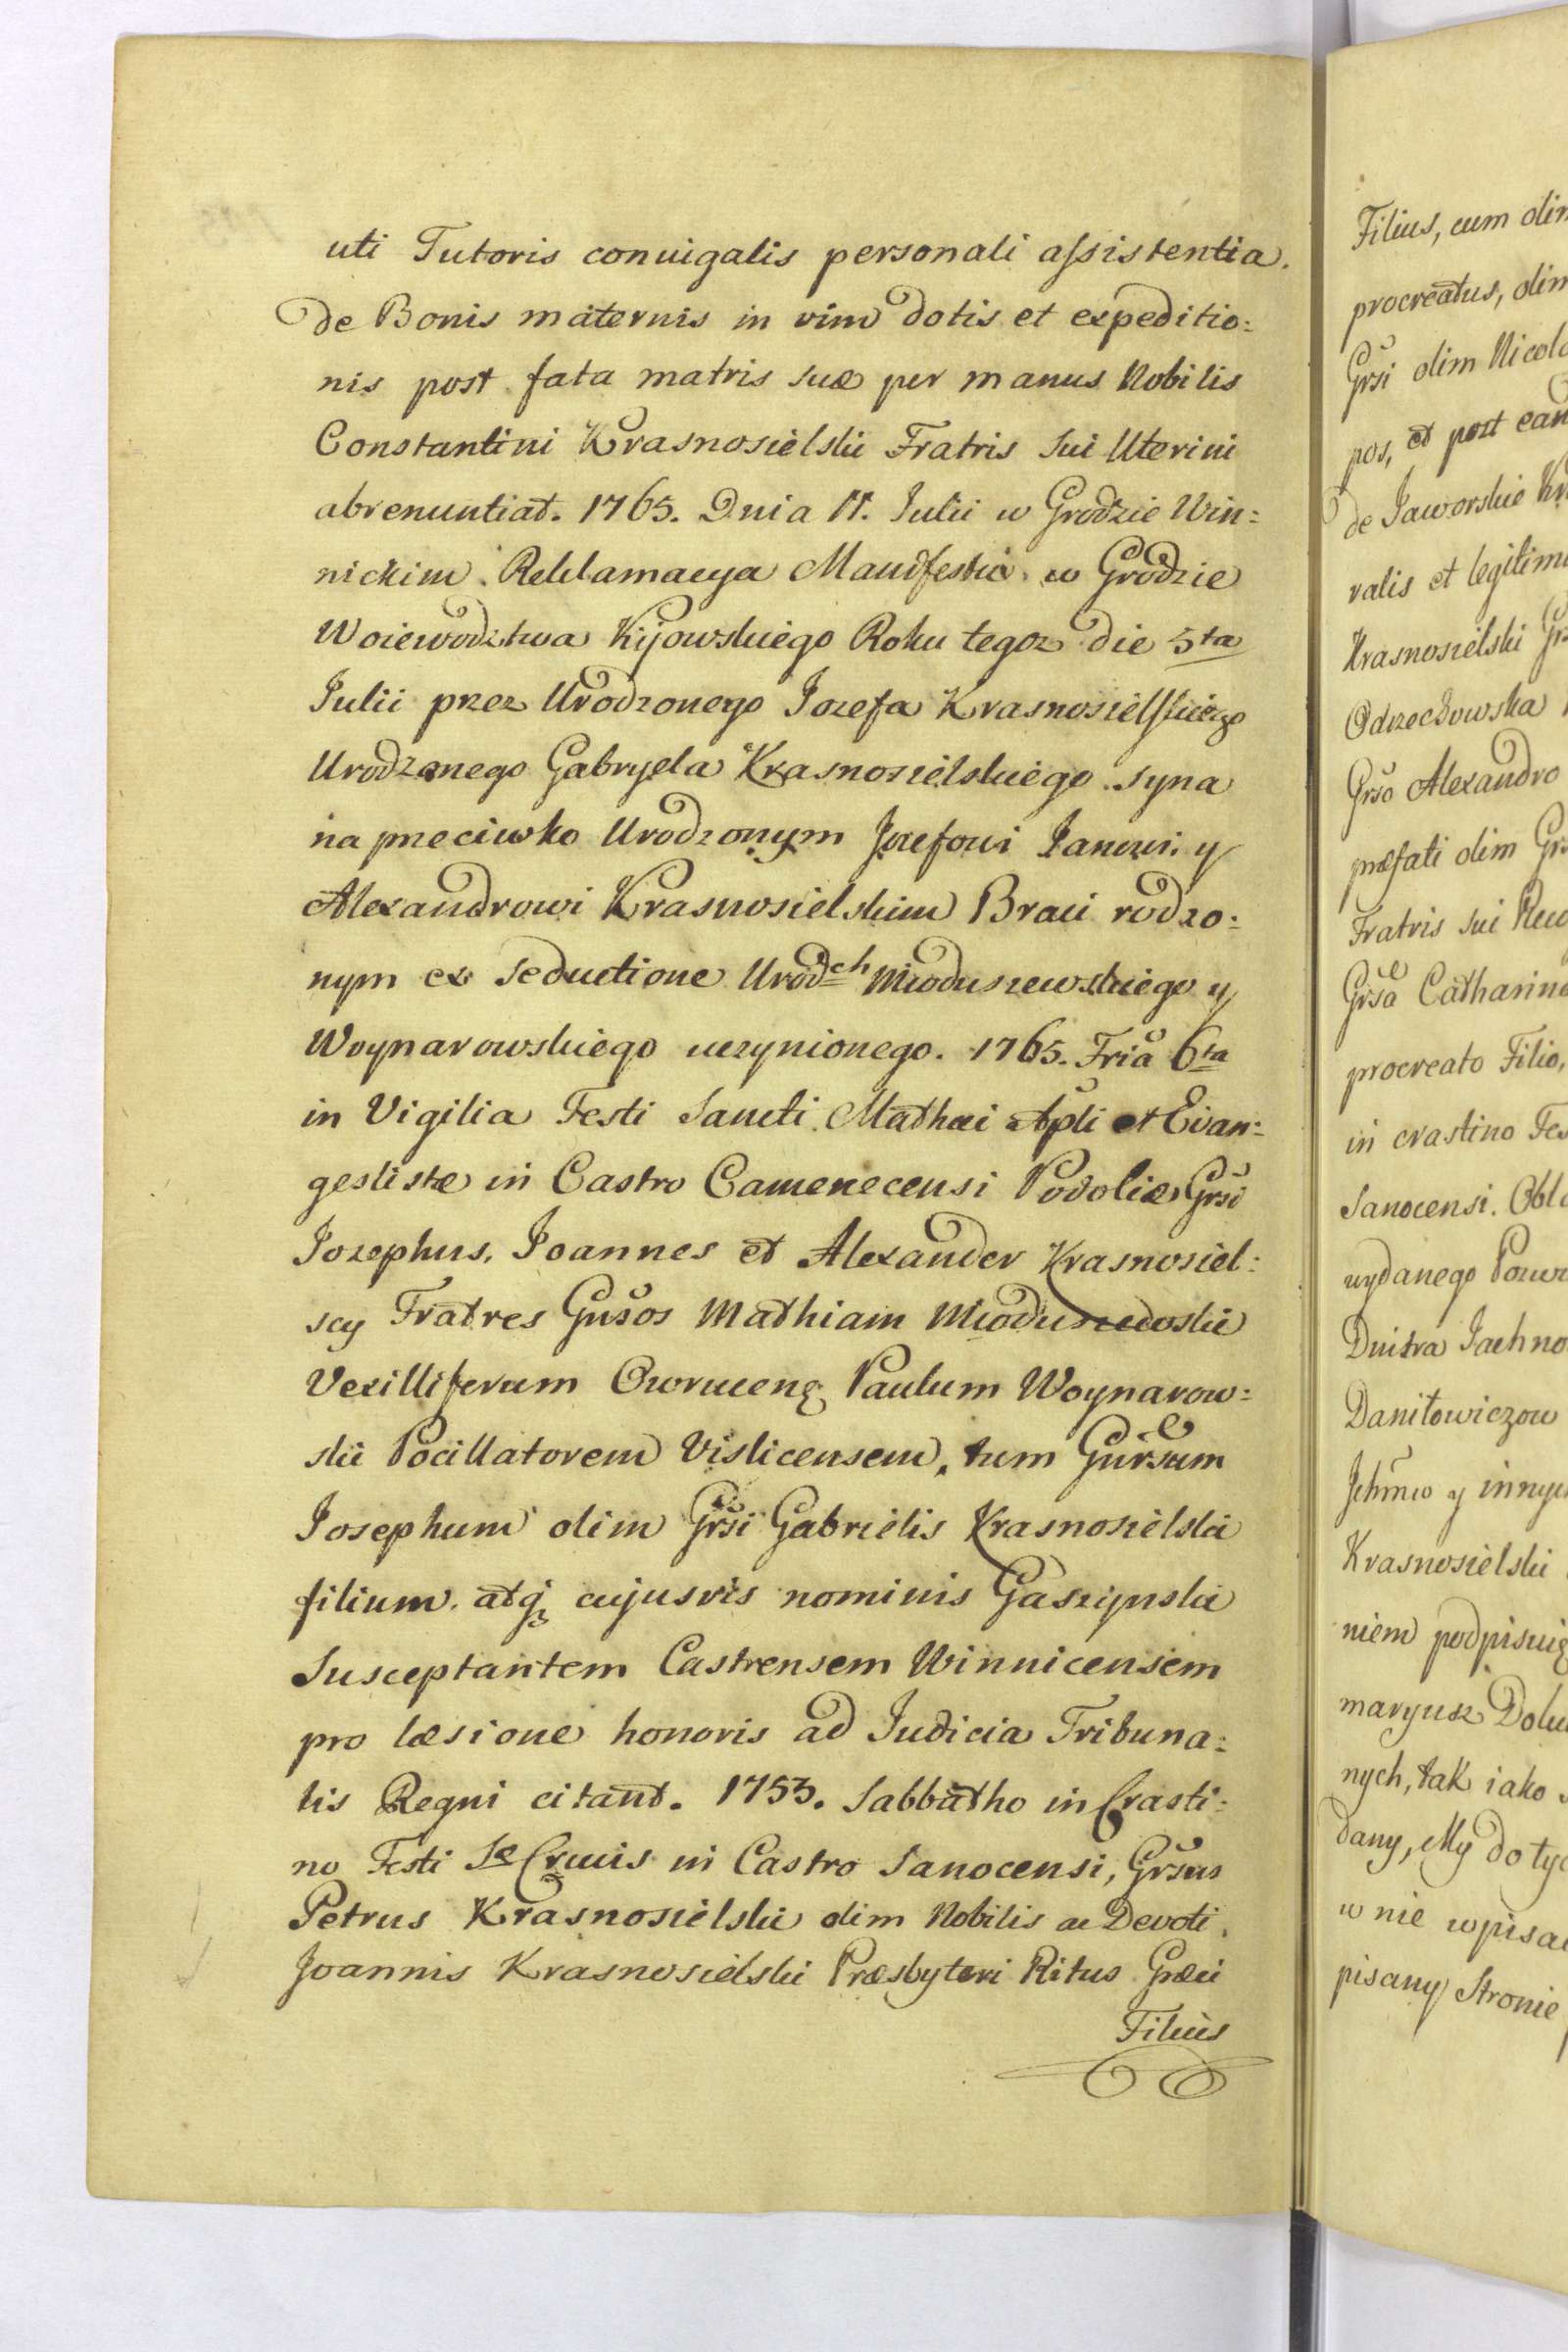 uti Tutoris conuigalis personali assistentia.
de Bonis maternis in vim dotis et expeditio=
nis post fata matris suæ per manus Nobilis
Constantini Krasnosielski Fratris sui Uterini
abrenuntiat. 1765. Dnia 11. Julii w Grodzie Win=
nickim. Reklamacya Manifestu w Grodzie
Woiewodztwa Kijowskiego Roku tegoz die 5ta
Julii przez Urodzonego Jozefa Krasnosielskiego
Urodzonego Gabryela Krasnosielskiego syna
na przeciwko Urodzonym Jozefowi Janowi y
Alexandrowi Krasnosielskim Braci rodzo=
nym ex seductione Urodch Mioduszewskiego y
Woynarowskiego uczynionego. 1765. Fria 6ta
in Vigilia Festi Sancti Mathæi Apli et Evan=
gelistæ in Castro Camenecensi Podoliæ Grsi
Jozephus, Joannes et Alexander Krasnosiel=
scy Fratres Gnsos Mathiam Mioduszewski
Vexilliferum Owrucenę Paulum Woynarow=
ski Pocillatorem Vislicensem, tum Gnrsum
Josephum olim Grsi Gabrielis Krasnosielski
filium. atqꝫ cujusvis nominis Gaszynski
Susceptantem Castrensem Winnicensem
pro læsione honoris ad Judicia Tribuna=
lis Regni citant. 1753. Sabbatho in Crasti=
no Festi Sæ Crucis in Castro Sanocensi, Grsus
Petrus Krasnosielski olim Nobilis ac Devoti
Joannis Krasnosielski Præsbyteri Ritus Græci
Filius
Filius, cum
procreatus, olim
Grsi olim
pos, et post
de Jaworskie
valis et
Krasnosielski
Odrzechowska
Grso Alexandro
præfati olim
Fratris sui
Grsa
procreato Filio,
in crastino
Sanocensi.
wydanego
Dnistra
Daniłowiczow
y
Krasnosielski
niem
maryusz
nych, tak iako
dany, My do
w nie
pisany Stronie